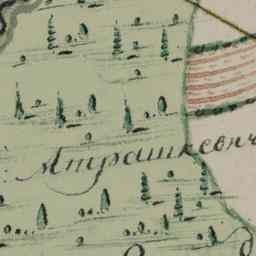 Мтрашкевич